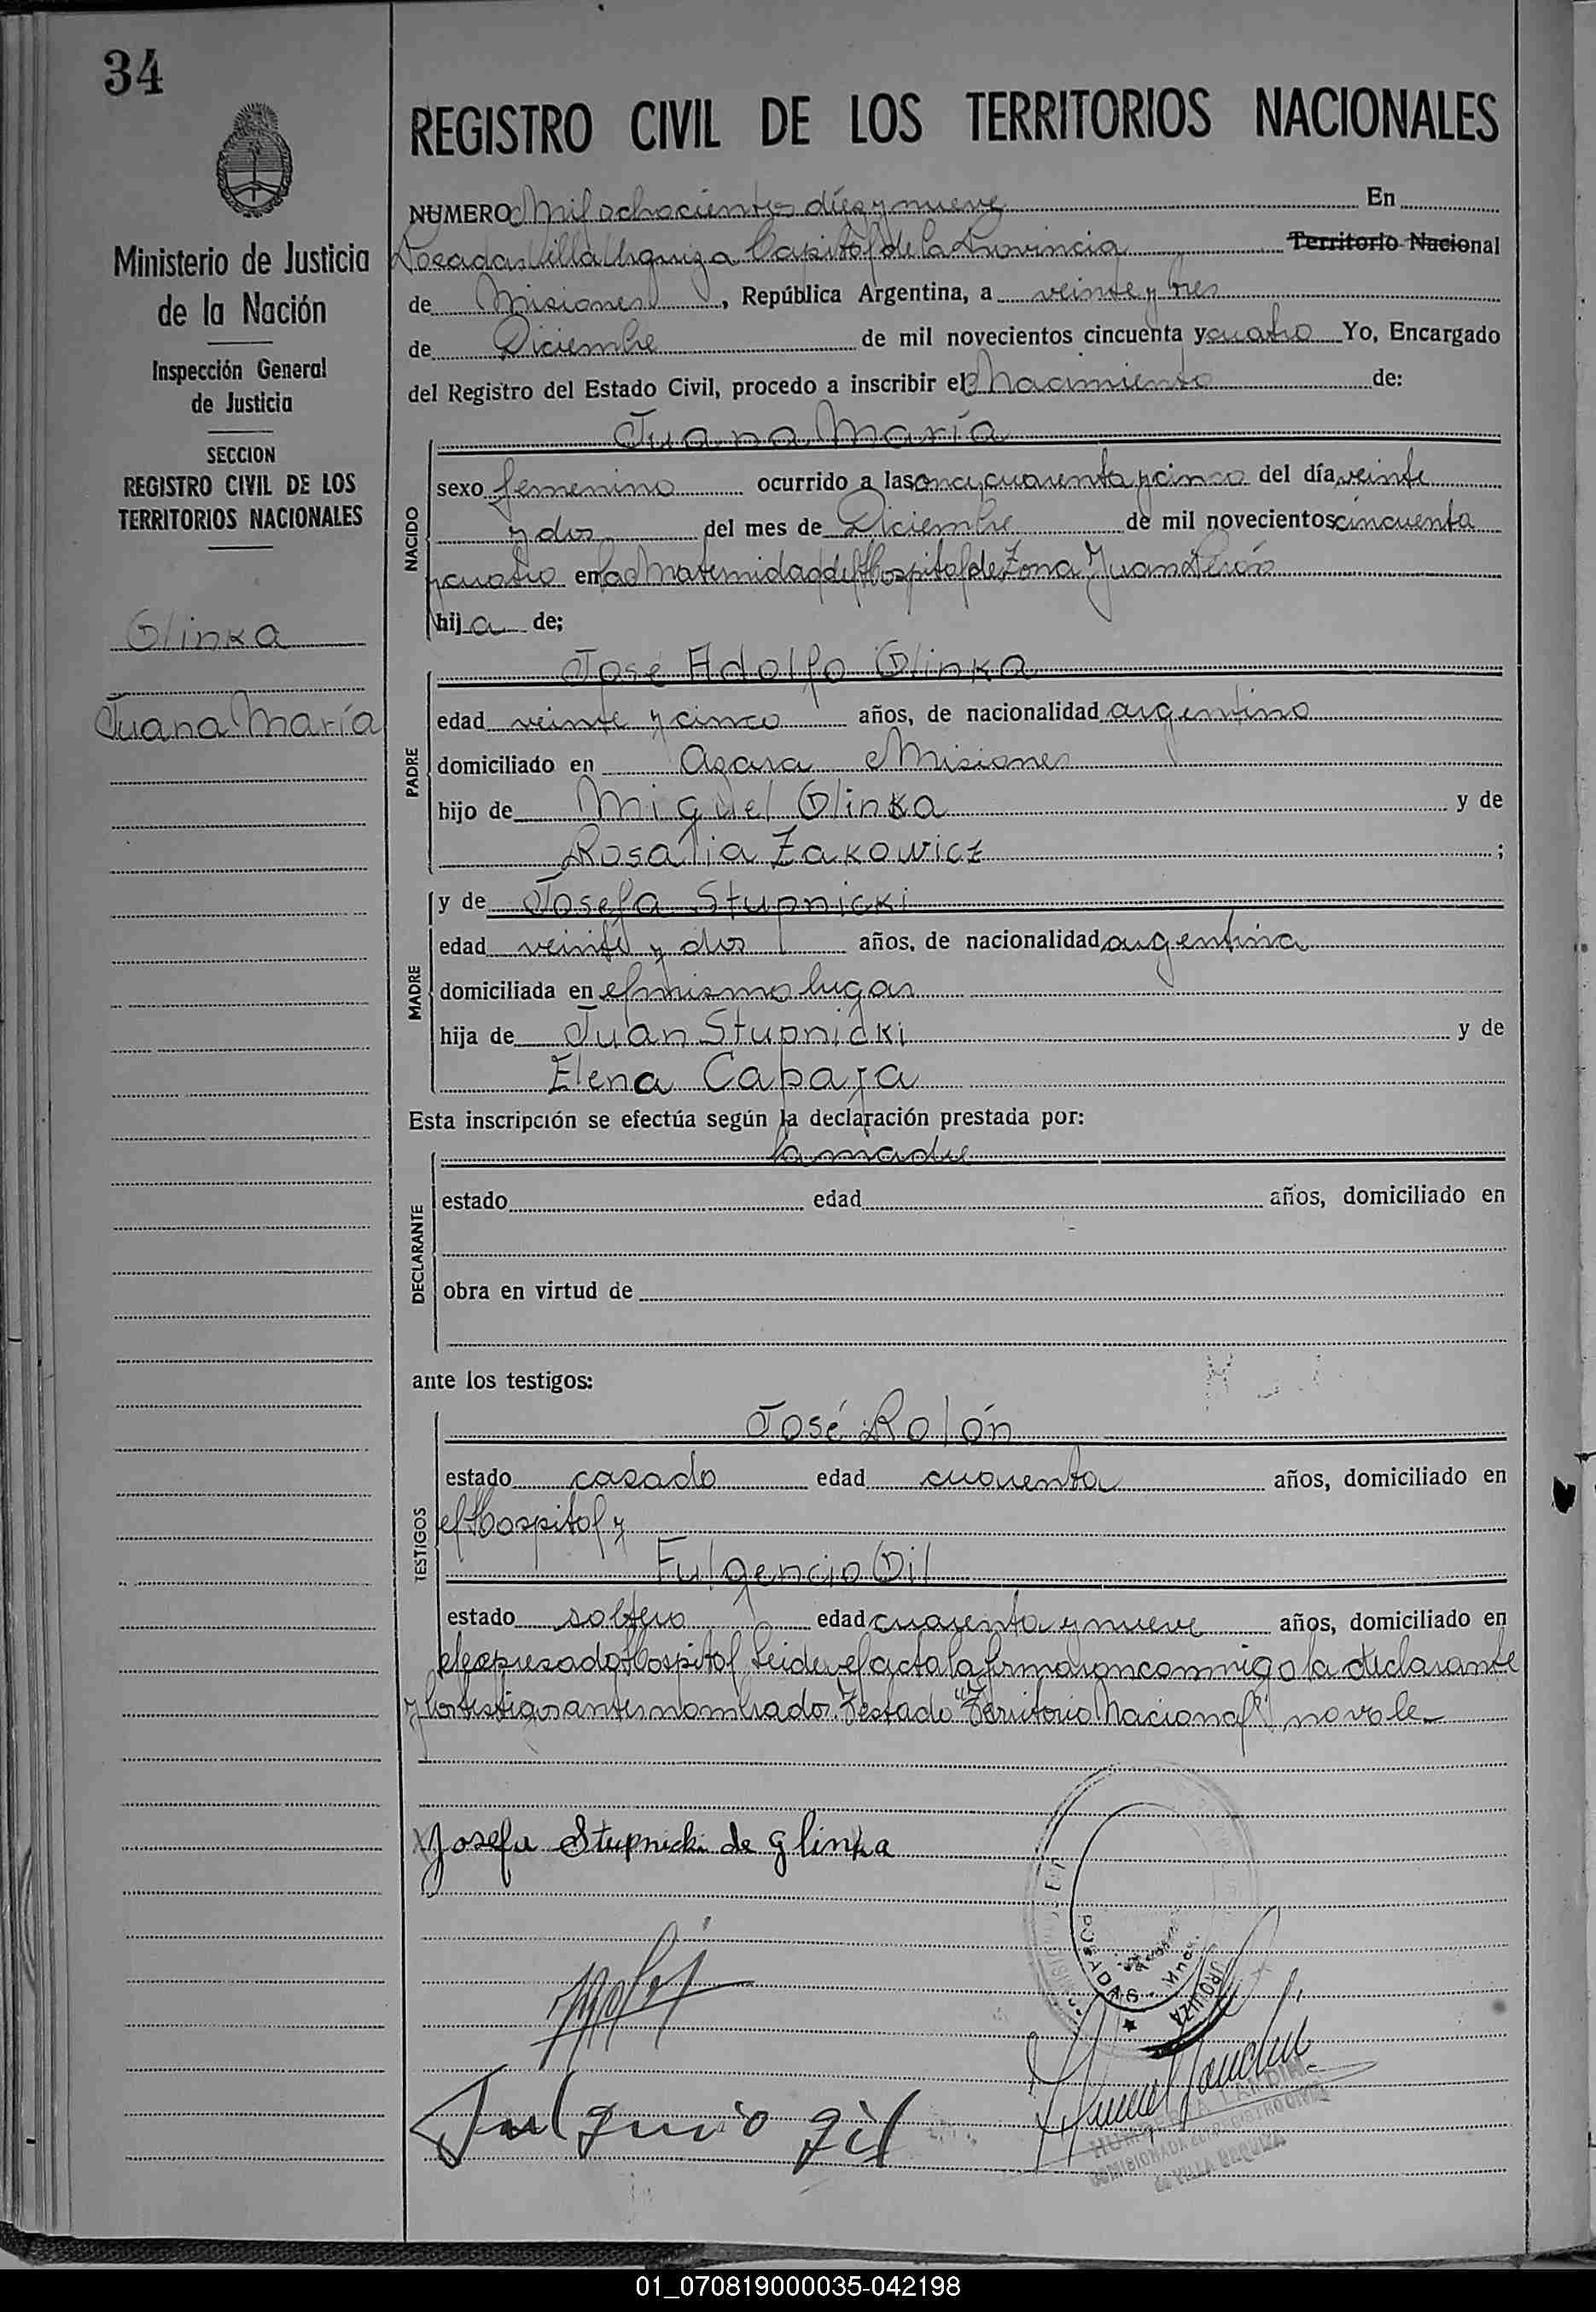 34
REGISTRO CIVIL DE LOS TERRITORIOS NACIONALES
Ministerio de Justicia
de la Nación
Inspección General
de Justicia
SECCION
REGISTRO CIVIL DE LOS
TERRITORIOS NACIONALES
Glinka
Juana María
NUMERO Mil ochocientos diez y nueve En
Posadas Villa Urquiza Capital de la Provincia Territorio Nacional
de Misiones, República Argentina, a veinte y tres
de Diciembre de mil novecientos cincuenta y cuatro Yo, Encargado
del Registro del Estado Civil, procedo a inscribir el Nacimiento de:
NACIDO
Juana María
sexo femenino ocurrido a las once y cuarenta y cinco del día veinte
y dos del mes de Diciembre de mil novecientos cincuenta
y cuatro en la Maternidad del Hospital de Zona Juan Perón
hija de;
PADRE
José Adolfo Glinka
edad veinte y cinco años, de nacionalidad argentino
domiciliado en Azara Misiones
hijo de Miguel Glinka y de
Rosalia Zakowicz ;
MADRE
y de Josefa Stupnicki
edad veinte y dos años, de nacionalidad argentina
domiciliada en el mismo lugar
hija de Juan Stupnicki y de
Elena Capaja
Esta inscripción se efectúa según la declaración prestada por:
DECLARANTE
la madre
estado edad años, domiciliado en
obra en virtud de
ante los testigos:
TESTIGOS
José Rolón
estado casado edad cuarenta años, domiciliado en
el Hospital y
Fulgencio Gil
estado soltero edad cuarenta y nueve años, domiciliado en
el expresado Hospital Leida el acta la firmaron conmigo la declarante
y los testigos antes nombrados. Testado "Territorio Nacional" no vale
Josefa Stupnicki de Glinka
POSADAS - Mnes.
URQUIZA
Fulgencio Gil
COMISIONADA DEL REGISTRO CIVIL
de VILLA URQUIZA
01_070819000035-042198